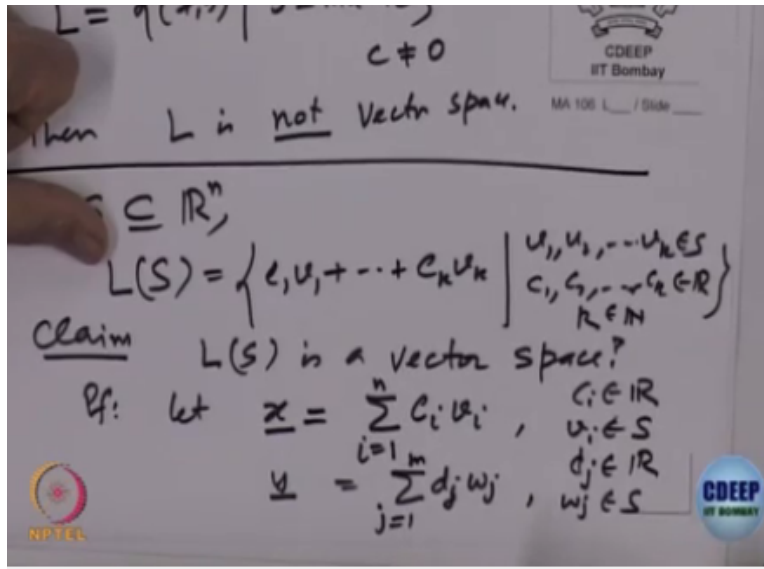 L =
c ≠ 0
CDEEP
IIT Bombay
MA 106 L___ / Slide ____
Then L is not Vectr space.
S ⊆ ℝⁿ,
L(S) = { c₁v₁ + ... + cₖvₖ | v₁, v₂, ... vₖ ∈ S
c₁, c₂, ... cₖ ∈ ℝ
k ∈ ℕ }
Claim L(S) is a vector space?
Pf: let x = Σⁿᵢ₌₁ cᵢ vᵢ , cᵢ ∈ ℝ
vᵢ ∈ S
y = Σᵐⱼ₌₁ dⱼ wⱼ , dⱼ ∈ ℝ
wⱼ ∈ S
NPTEL
CDEEP
IIT BOMBAY